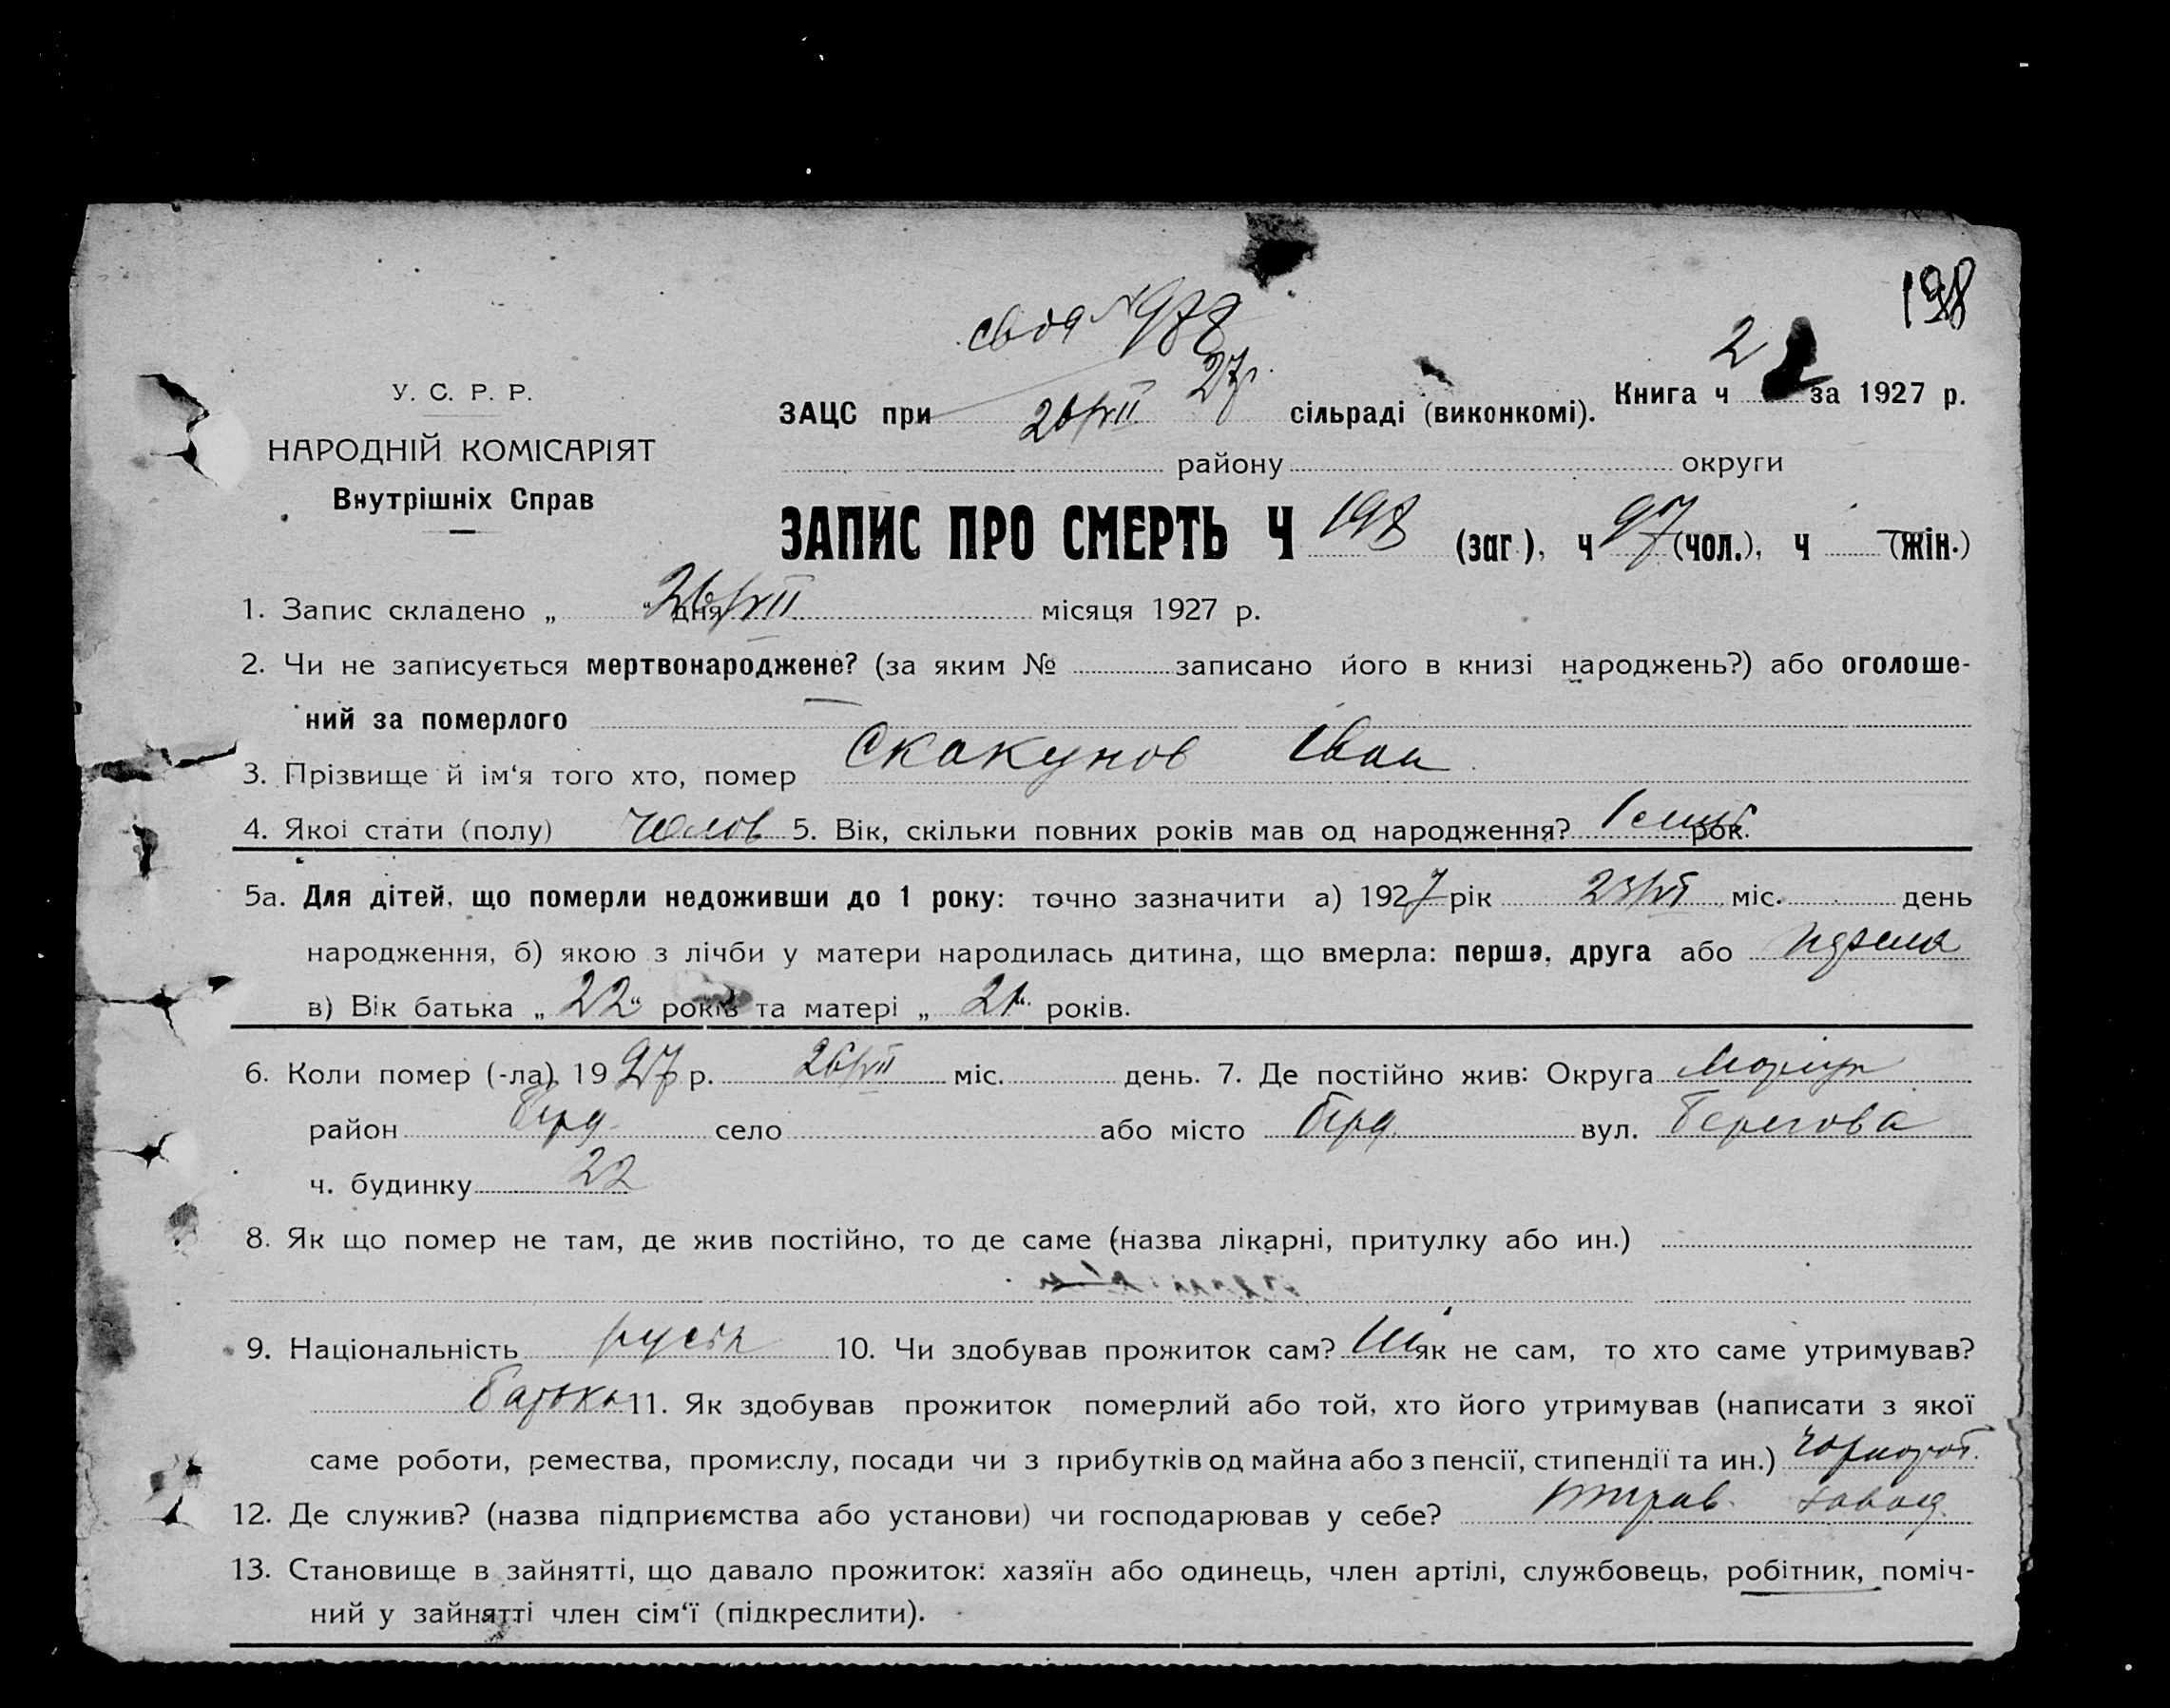 198
свод № 988
2
У. С. Р. Р.
НАРОДНІЙ КОМІСАРІЯТ
Внутрішніх Справ
Книга ч за 1927 р.
ЗАЦС при 26/VII 27р. сільраді (виконкомі).
району округи
ЗАПИС ПРО СМЕРТЬ Ч 198 (заг.), ч 97 (чол.), ч (жін.)
1. Запис складено „ 26/VII “ дня місяця 1927 р.
2. Чи не записується мертвонароджене? (за яким № записано його в книзі народжень?) або оголоше-
ний за померлого —
3. Прізвище й ім‘я того хто, помер Скакунов Іван
4. Якої стати (полу) челов 5. Вік, скільки повних років мав од народження? 1 рок.
5а. Для дітей, що померли недоживши до 1 року: точно зазначити а) 1927 рік 23/VI міс. день
народження, б) якою з лічби у матери народилась дитина, що вмерла: перша, друга або
в) Вік батька „ 22 “ років та матері „ 21 “ років.
6. Коли помер (-ла) 1927 р. 26/VII міс. день. 7. Де постійно жив: Округа Маріуп
район Берд. село або місто Берд. вул. Берегова
ч. будинку 22
8. Як що помер не там, де жив постійно, то де саме (назва лікарні, притулку або ин.)
9. Національність русск 10. Чи здобував прожиток сам? Ні як не сам, то хто саме утримував?
батько 11. Як здобував прожиток померлий або той, хто його утримував (написати з якої
саме роботи, ремества, промислу, посади чи з прибутків од майна або з пенсії, стипендії та ин.) чорнороб.
12. Де служив? (назва підприємства або установи) чи господарював у себе? завод
13. Становище в зайнятті, що давало прожиток: хазяїн або одинець, член артілі, службовець, робітник, поміч-
ний у зайнятті член сім‘ї (підкреслити).